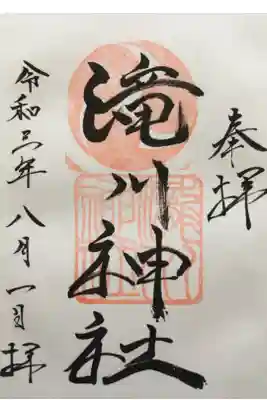 奉拝
滝川神社
令和六年八月一日拝